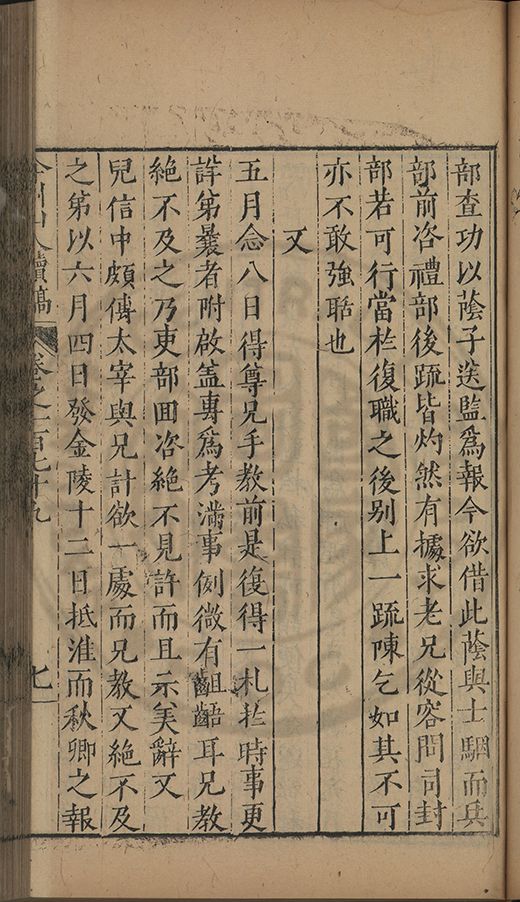 部查功以蔭子送監爲報今欲借此蔭與士駰而兵
部前咨禮部後䟽皆灼然有據求老兄從容問司封
部若可行當於復職之後别上一䟽陳乞如其不可
亦不敢強聒也
又
五月念八日得尊兄手教前是復得一札於時事更
詳第曩者附啟盖專爲考滿事例微有齟齬耳兄教
絶不及之乃吏部囬咨絶不見許而且示美辭又
兒信中頗傳太宰與兄計欲一處而兄教又絶不及
之第以六月四日發金陵十二日抵淮而秋卿之報
弇州山人續稿 卷之一百七十九 七